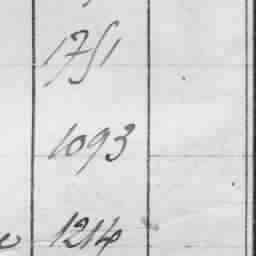 1751
1093
1214